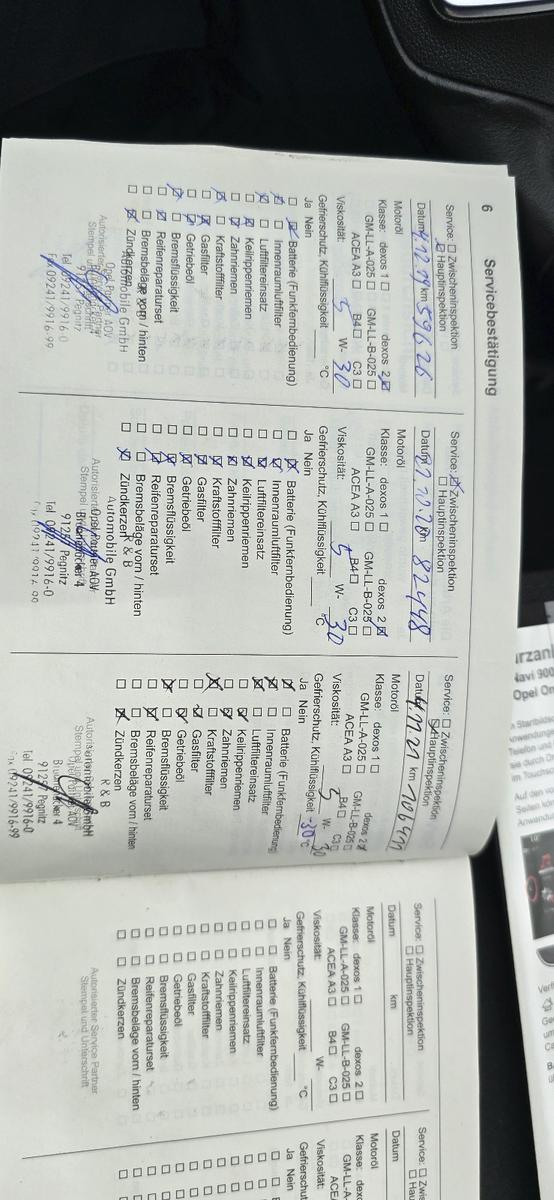 6
Servicebestätigung
Service: Zwischeninspektion
Hauptinspektion
Datum 4.12.19 km 59626
Motoröl
Klasse: dexos 1 dexos 2
GM-LL-A-025 GM-LL-B-025
ACEA A3 B4 C3
Viskosität: 5 W- 30
Gefrierschutz, Kühlflüssigkeit °C
Ja Nein
Batterie (Funkfernbedienung)
Innenraumluftfilter
Luftfiltereinsatz
Keilrippenriemen
Zahnriemen
Kraftstofffilter
Gasfilter
Getriebeöl
Bremsflüssigkeit
Reifenreparaturset
Bremsbeläge vorn / hinten
Zündkerzen
Automobile GmbH
Pegnitz
Tel 09241/9916-0
09241/9916-99
Service: Zwischeninspektion
Hauptinspektion
Datum km 82448
Motoröl
Klasse: dexos 1 dexos 2
GM-LL-A-025 GM-LL-B-025
ACEA A3 B4 C3
Viskosität: 5 W- 30
Gefrierschutz, Kühlflüssigkeit °C
Ja Nein
Batterie (Funkfernbedienung)
Innenraumluftfilter
Luftfiltereinsatz
Keilrippenriemen
Zahnriemen
Kraftstofffilter
Gasfilter
Getriebeöl
Bremsflüssigkeit
Reifenreparaturset
Bremsbeläge vorn / hinten
Zündkerzen
R & B
Automobile GmbH
91257 Pegnitz
Tel 09241/9916-0
09241/9916-99
Service: Zwischeninspektion
Hauptinspektion
Datum km
Motoröl
Klasse: dexos 1 dexos 2
GM-LL-A-025 GM-LL-B-025
ACEA A3 B4 C3
Viskosität: 5 W- 30
Gefrierschutz, Kühlflüssigkeit -30 °C
Ja Nein
Batterie (Funkfernbedienung)
Innenraumluftfilter
Luftfiltereinsatz
Keilrippenriemen
Zahnriemen
Kraftstofffilter
Gasfilter
Getriebeöl
Bremsflüssigkeit
Reifenreparaturset
Bremsbeläge vorn / hinten
Zündkerzen
R & B
91257 Pegnitz
Tel 09241/9916-0
09241/9916-99
Service: Zwischeninspektion
Hauptinspektion
Datum km
Motoröl
Klasse: dexos 1 dexos 2
GM-LL-A-025 GM-LL-B-025
ACEA A3 B4 C3
Viskosität: W-
Gefrierschutz, Kühlflüssigkeit °C
Ja Nein
Batterie (Funkfernbedienung)
Innenraumluftfilter
Luftfiltereinsatz
Keilrippenriemen
Zahnriemen
Kraftstofffilter
Gasfilter
Getriebeöl
Bremsflüssigkeit
Reifenreparaturset
Bremsbeläge vorn / hinten
Zündkerzen
Autorisierter Service Partner
Stempel und Unterschrift
Service:
Datum
Motoröl
Klasse:
Viskosität:
Ja Nein
Navi 900